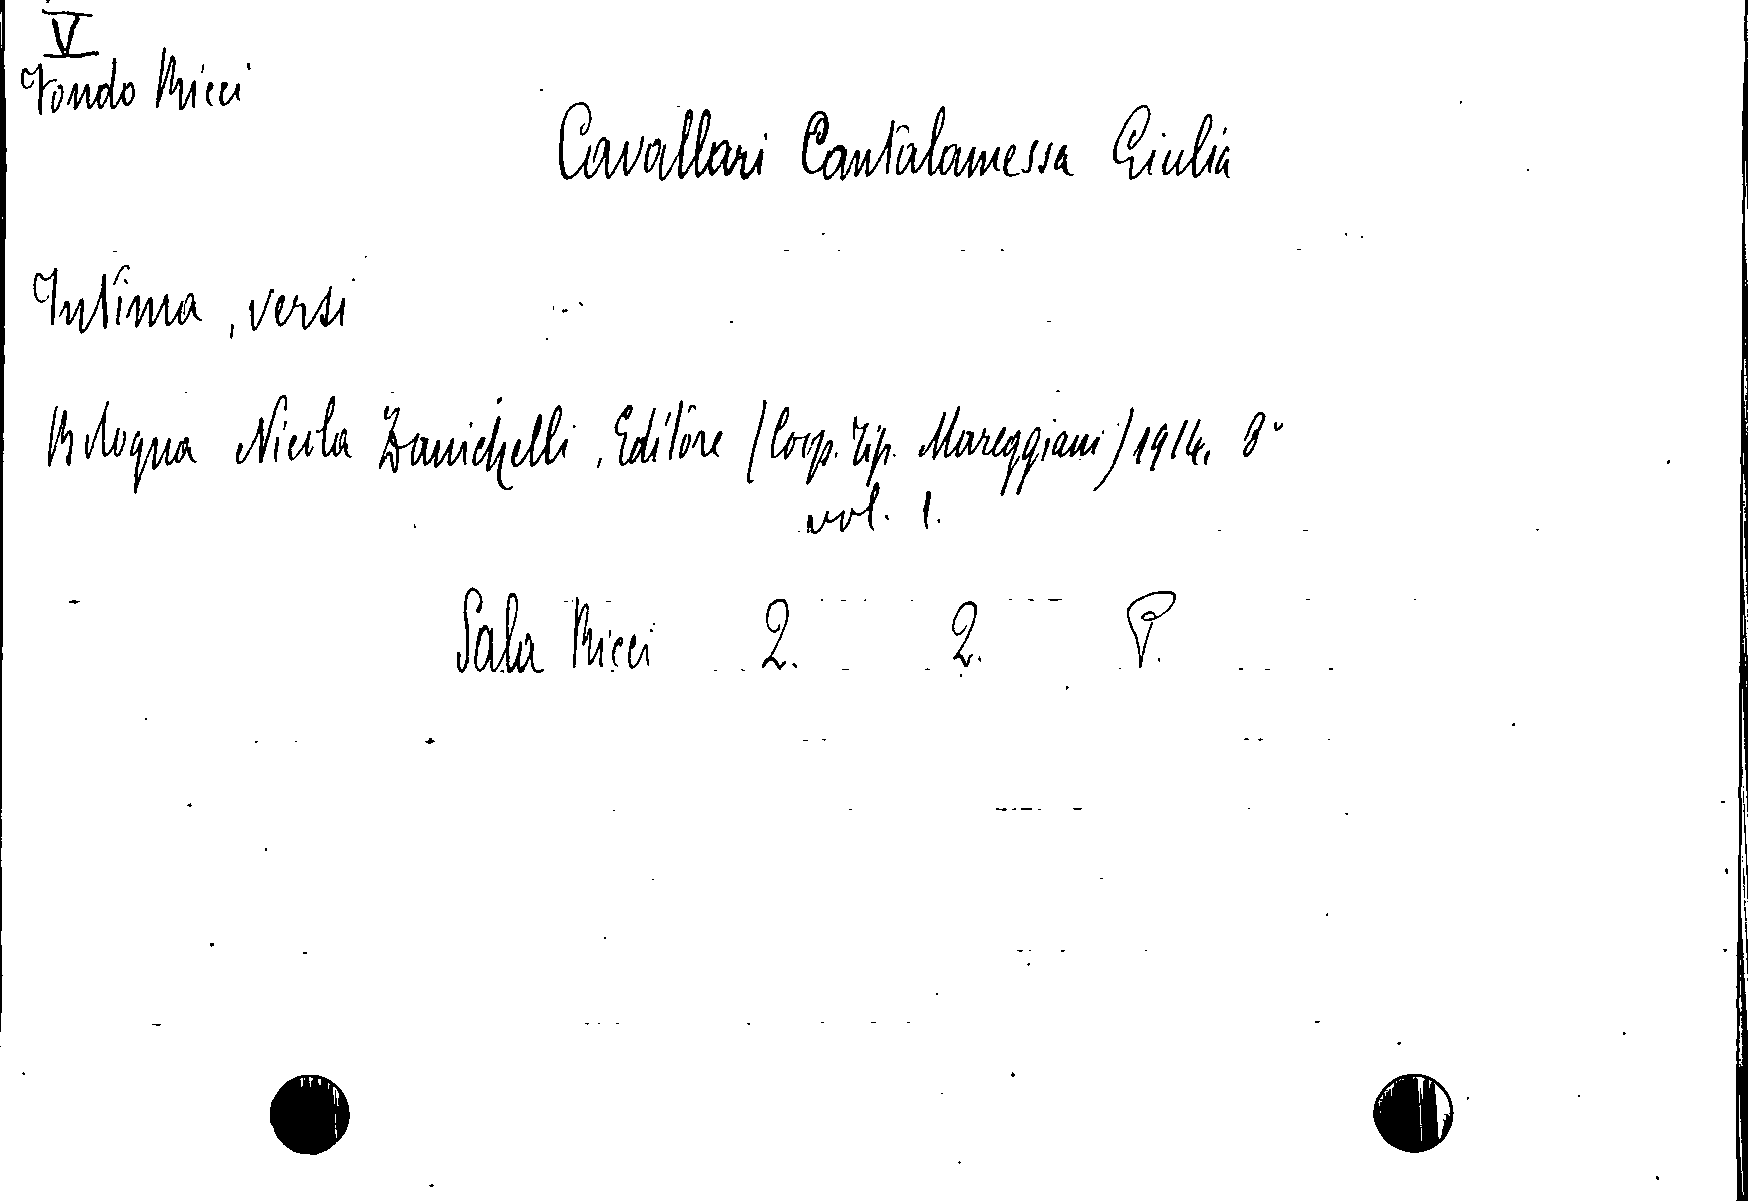 V
Fondo Ricci
Cavallari Cantalamessa Giulia
Intima, versi
Bologna Nicola Zanichelli, Editore (Coop. Tip. Mareggiani) 1914. 8°
vol. 1.
Sala Ricci 2. 2. P.